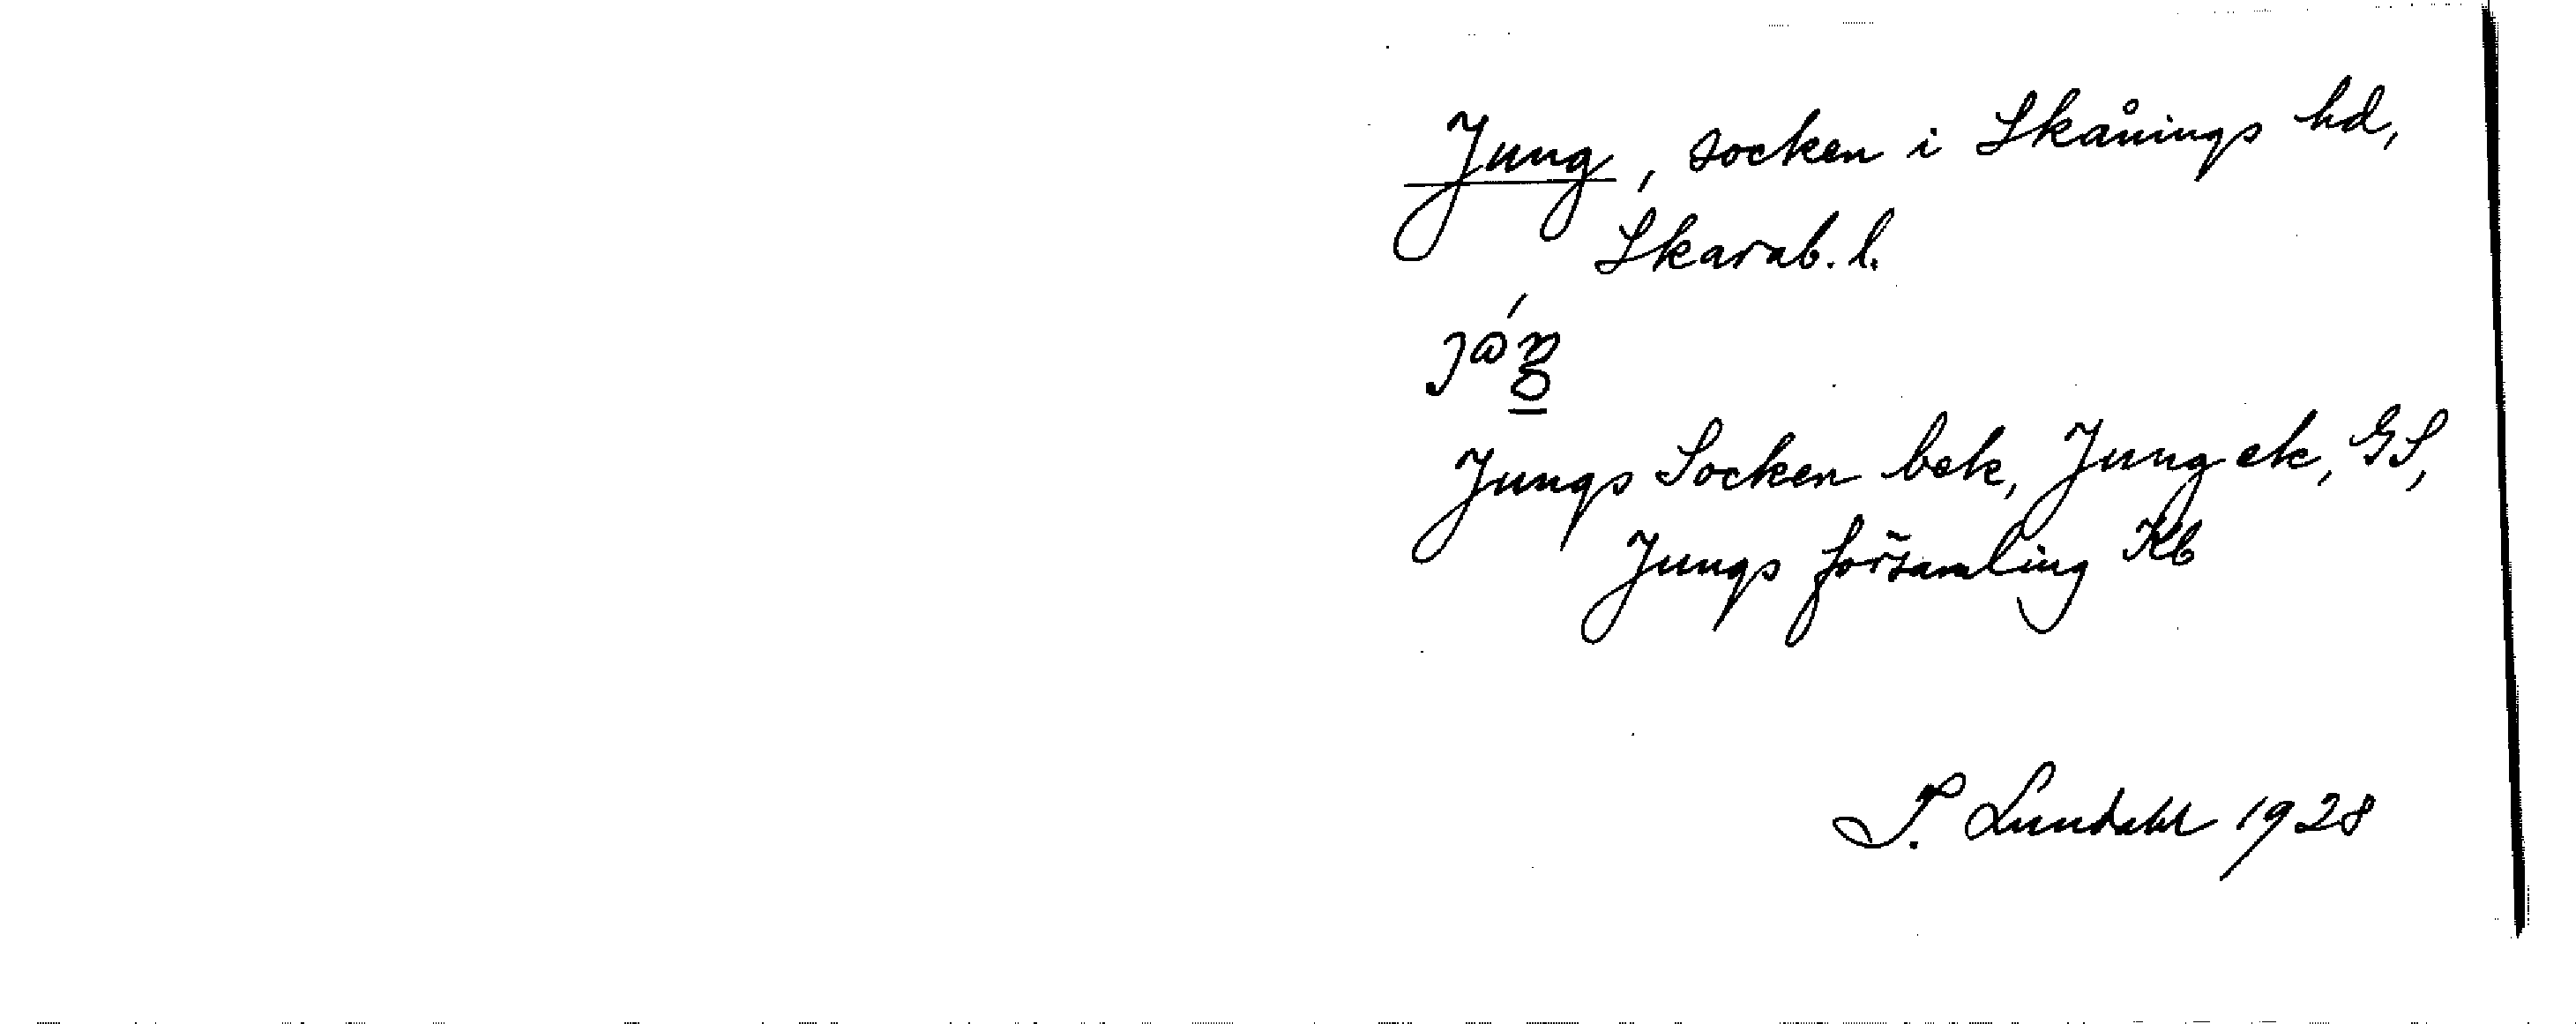 Jung, socken i Skånings hd,
Skarab. l.
Jungs Socken bek, Jung ek, GS,
Jungs församling Kb
T. Lundahl 1928